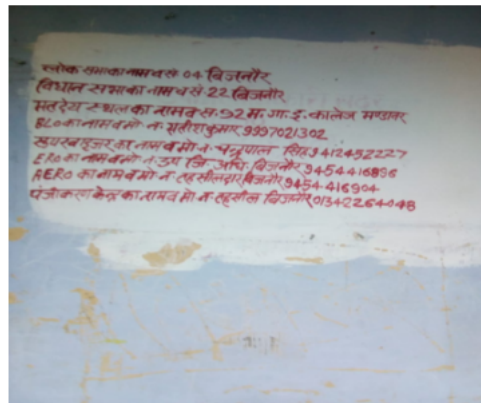 लोक सभा का नाम व सं 04 बिजनौर
विधान सभा का नाम व सं. 22 बिजनौर
मतदेय स्थल का नाम व सं. 92 म. गा. इ. कालेज मण्डावर
BLO का नाम व मो न. सतीश कुमार 9997021302
सुपरवाइजर का नाम व मो न. चन्द्रपाल सिंह 9412452227
ERO का नाम व मो न. उप जि. अधि. बिजनौर 9454416896
AERO का नाम व मो न. तहसीलदार बिजनौर 9454416904
पंजीकरण केन्द्र का नाम व मो न. तहसील बिजनौर 01342264048